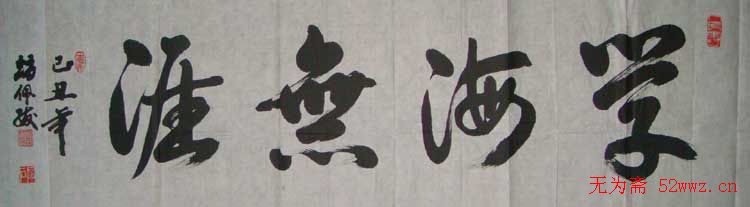 学海無涯
己丑年
无为斋 52wwz.cn